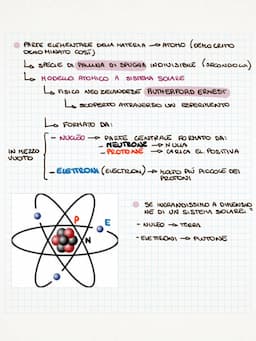 PARTE ELEMENTARE DELLA MATERIA → ATOMO (DEMOCRITO
DENOMINATO COSÌ)
↳ SPECIE DI PALLINA DI SPUGNA INDIVISIBILE (SECONDO LUI)
↳ MODELLO ATOMICO A SISTEMA SOLARE
↳ FISICO NEO ZELANDESE RUTHERFORD ERNEST
↳ SCOPERTO ATTRAVERSO UN ESPERIMENTO
↳ FORMATO DA:
- NUCLEO → PARTE CENTRALE FORMATO DA:
- NEUTRONE → NULLA
- PROTONE → CARICA EL. POSITIVA
IN MEZZO
VUOTO
- ELETTRONI (ELECTRON) → MOLTO PIÙ PICCOLE DEI
PROTONI
P
E
N
SE INGRANDISSIMO A DIMENSIO
NE DI UN SISTEMA SOLARE:
- NUCLEO → TERRA
- ELETTRONI → PLUTONE